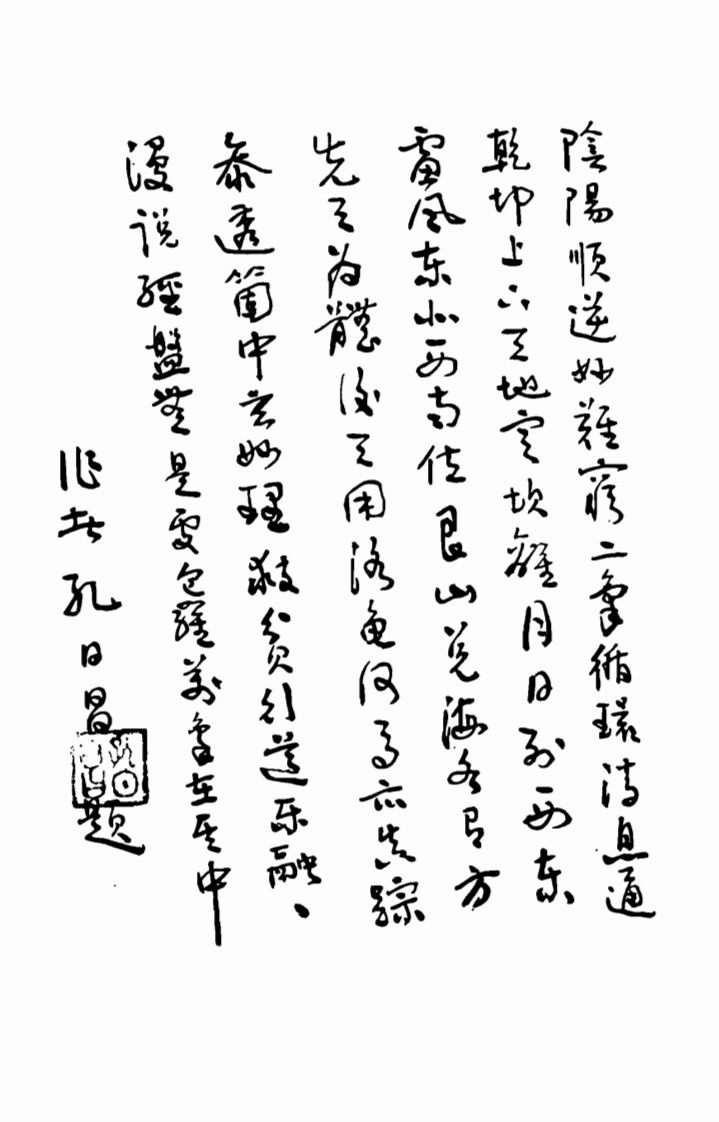 陰陽順逆妙難窮二氣循環消息通
乾坤上下天地定坎離月日列西東
雷風東北西南位艮山兌海各有方
先天為體後天用洛龜河馬亦失踪
泰透箇中玄妙理救貧行道樂融、
漫說經盤無是處包羅萬象在其中
作者孔日昌題